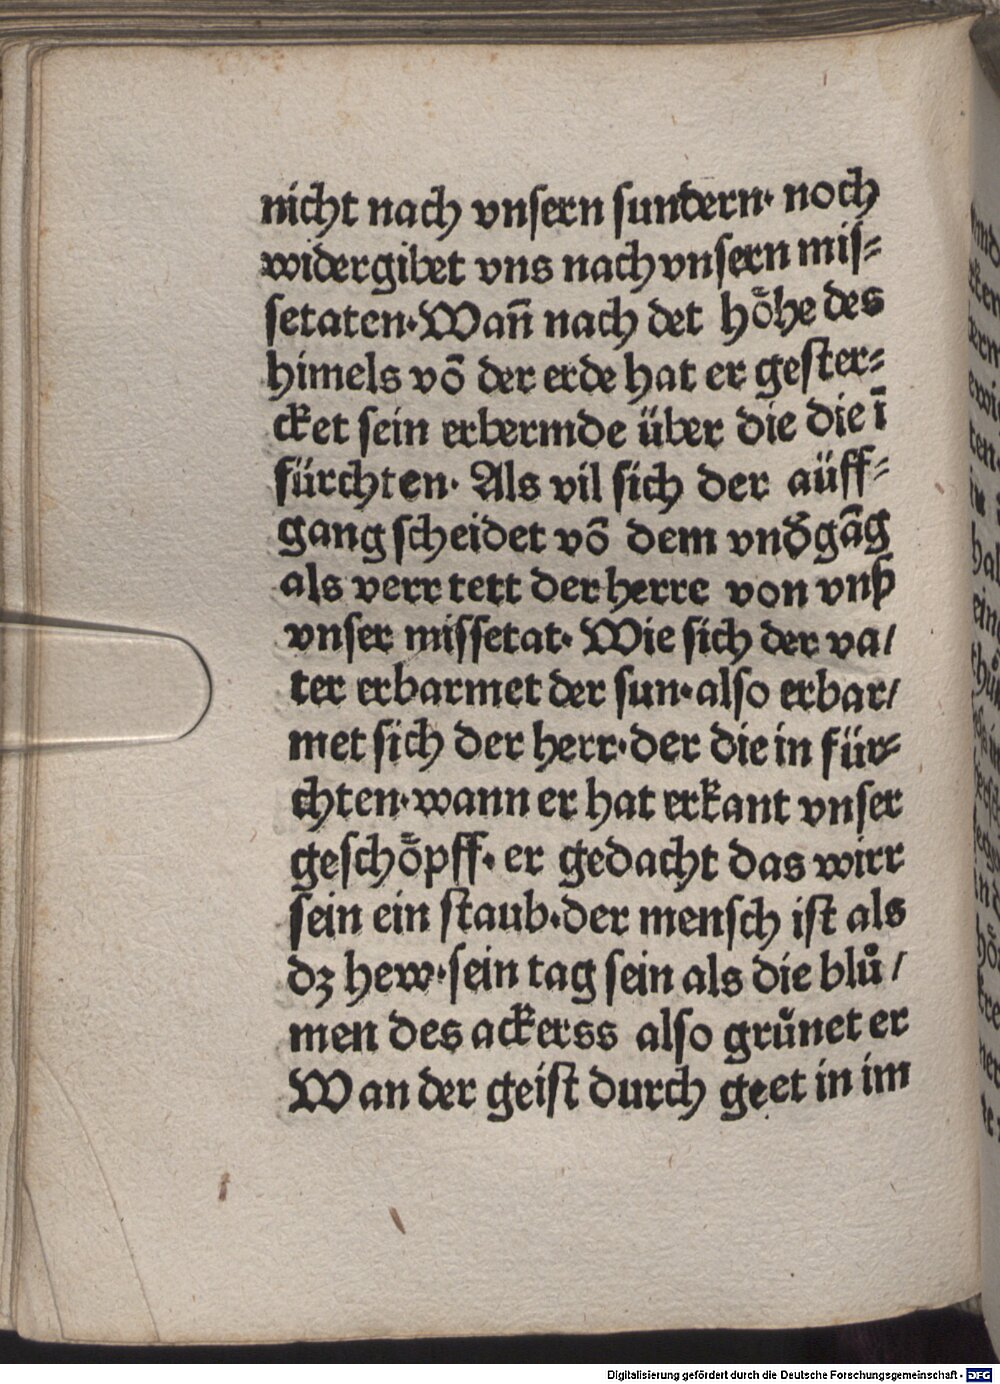 nicht nach vnsern sundern· noch
widergibet vns nach vnsern mis⸗
setaten·Wan̄ nach det hoͤhe des
himels vō der erde hat er gester⸗
cket sein erbermde über die die ī
fürchten· Als vil sich der aüff⸗
gang scheidet vō dem vnd̄gāg
als verr tett der herre von vnß
vnser missetat· Wie sich der va/
ter erbarmet der sun·also erbar/
met sich der herr·der die in für⸗
chten·wann er hat erkant vnser
geschoͤpff· er gedacht das wirr
sein ein staub·der mensch ist als
dz hew·sein tag sein als die blů/
men des ackerss also grůnet er
Wan der geist durch geet in im
Digitalisierung gefördert durch die Deutsche Forschungsgemeinschaft - DFG